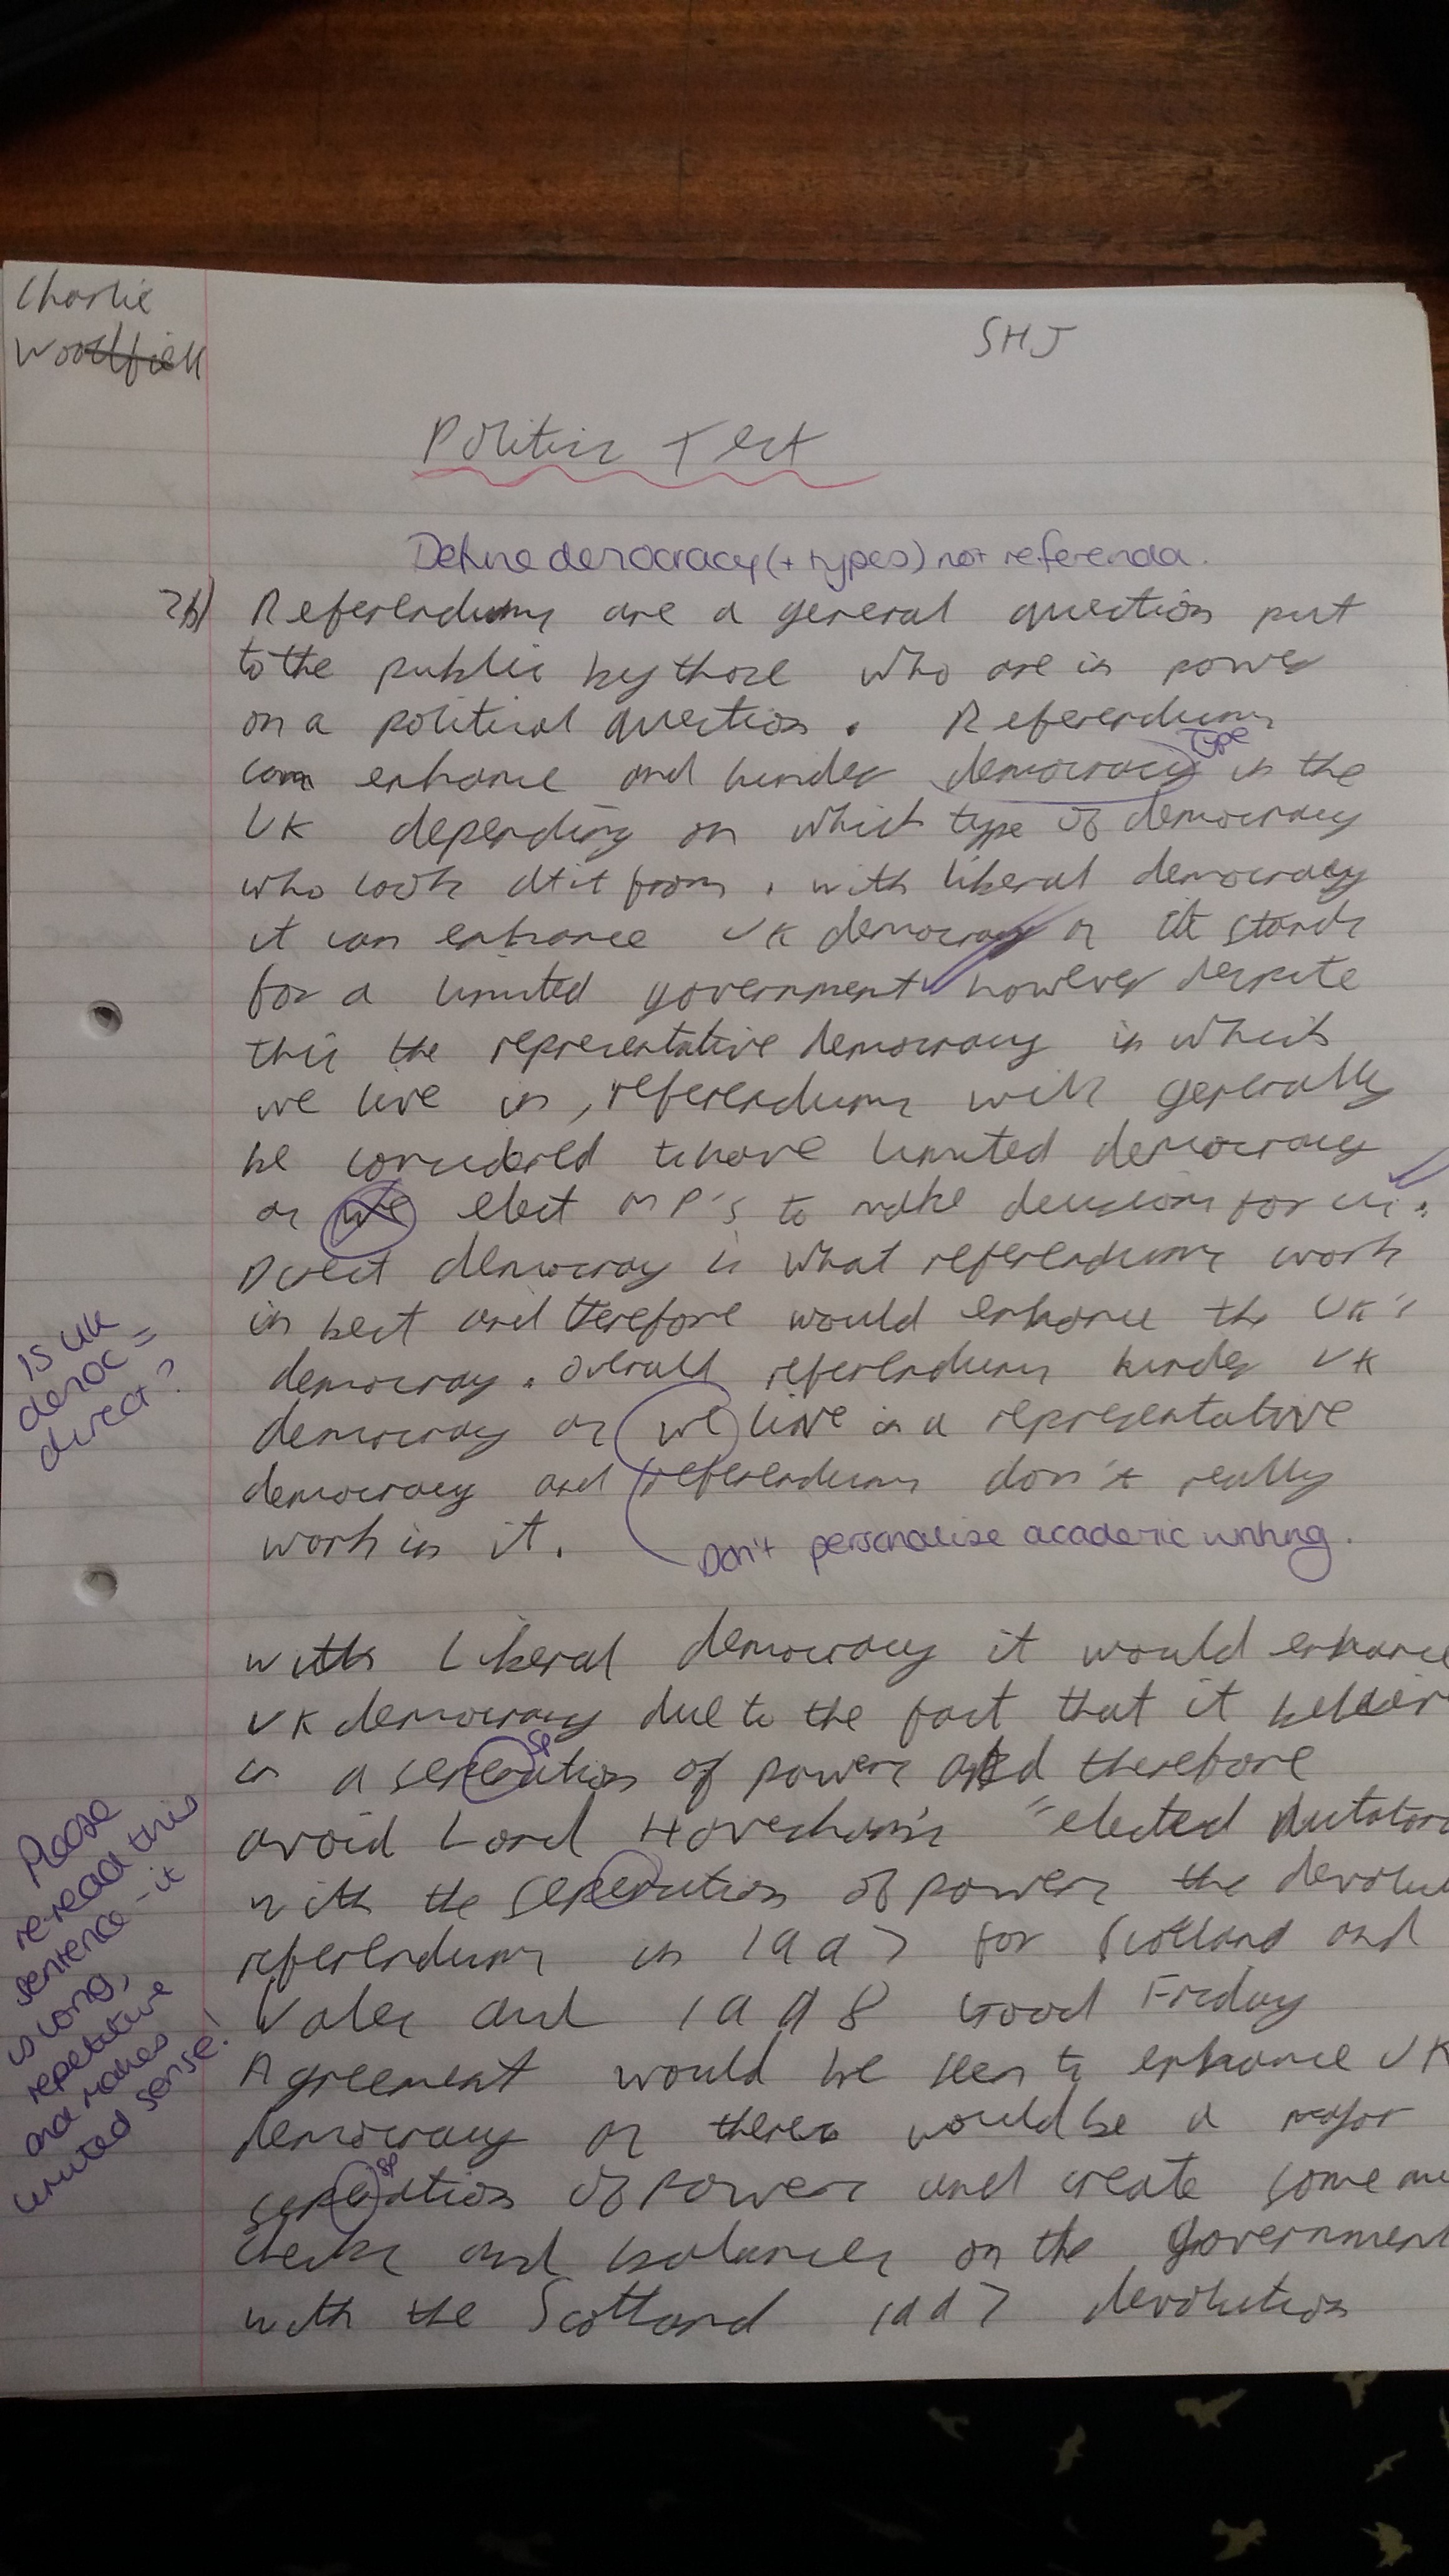 Charlie
SHJ
Politics Test
Define democracy (+ types) not referenda.
2b) Referendums are a general question put
to the public by those who are in power
on a political question. Referendums
can enhance and hinder democracy in the
type
UK depending on which type of democracy
who look at it from. with liberal democracy
it can enhance UK democracy as it stands
for a limited government however despite
this the representative democracy in which
we live in, referendums will generally
be considered to have limited democracy
as we elect MP's to make decisions for us.
Direct democracy is what referendums work
in best and therefore would enhance the UK's
Is UK
democ =
direct?
democracy. overall referendums hinder UK
democracy as we live in a representative
democracy and referendums don't really
work in it.
Don't personalise academic writing.
with Liberal democracy it would enhance
UK democracy due to the fact that it
sp
in a seperation of powers and therefore
avoid Lord "elected
with the seperation of powers the
referendums in 1997 for Scotland and
Wales and 1998 Good Friday
Agreement would be seen to enhance UK
democracy as there would be a major
sp
seperation of powers and create some
checks and balances on the government
with the Scotland 1997 devolution
Please
re-read this
sentence - it
is long,
repetative
and makes
limited sense!